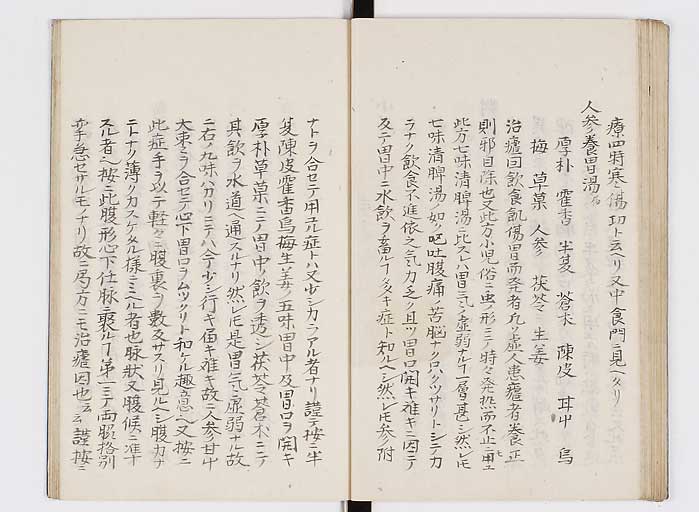 療四時寒傷功ト云ヘリ又中食門ニ見ヘタリ
人参養胃湯
厚朴 霍香 半夏 蒼朮 陳皮 耳屮 烏
梅 草菓 人参 茯苓 生姜
治瘧因飲食飢傷胃而発者凡ソ虚人患瘧者養正
則邪自除也又此方小児俗ニ虫ノ形ニテ時々発熱而不止ニ用ユ
此方七味清脾湯ニ比スレハ胃気ノ虚弱ナルコ一層甚シ然レモ
七味清脾湯ノ如ク嘔吐腹痛ノ苦脳ナク只クツサリトシテ力
ラナク飲食不進依之気力乏ク且ツ胃口開キ雅キニ因テ
及テ胃中ニ水飲ヲ畜ルコ多キ症ト知ルヘシ然レモ参附
ナトヲ合セテ用ユル症トハ又少シカラアル者ナリ謹テ按ニ半
夏陳皮霍香烏梅生姜ノ五味胃中及胃口ヲ開キ
厚朴草菓ニテ胃中ノ飲ヲ透シ茯苓蒼朮ニテ
其飲ヲ水道ヘ通スルナリ然レモ是胃気ニ虚弱ナル故
ニ右ノ九味ハカリニテハ今少シ行キ届キ雅キ故ニ人参甘屮
大棗ヲ合セテ心下胃口ヲムツクリト和ケル趣意ヘ又按ニ
此症手ヲ以テ軽々ニ腹裏ヲ數及サスリ見ルヘシ腹カナ
ニトナク薄ク力スケタル様ニミヘル者也脉状又腹候ニ准テ
スル者ヘ按ニ此腹形心下任脉ニ聚ルコ第一ニテ両脇格別
拏急セサルモノナリ故ニ局方ニモ治瘧因也云云 謹按ニ